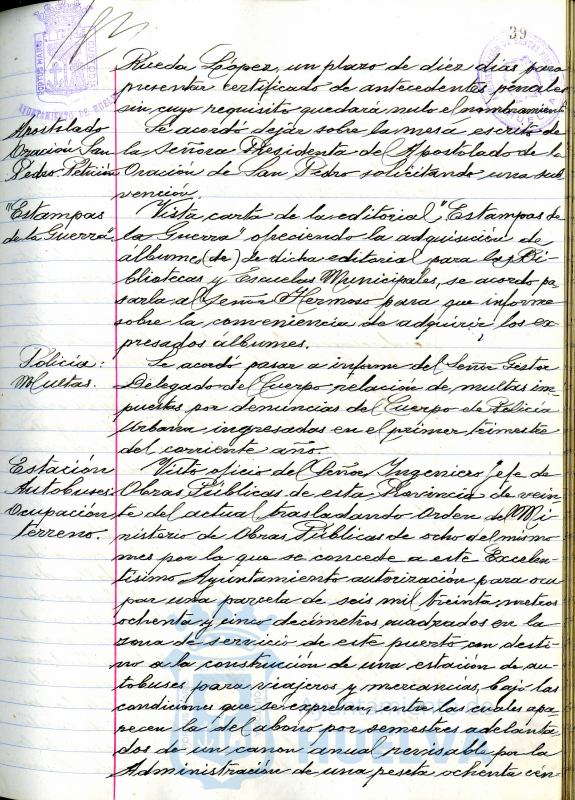 39
Rueda López, un plazo de diez dias para
presentar certificado de antecedentes penales
sin cuyo requisito quedará nulo el nombramient
Apostolado
Oración San
Pedro. Petición
Se acordó dejar sobre la mesa escrito de
la Señora Presidenta del Apostolado de la
Oración de San Pedro solicitando una sub
vención.
"Estampas
de la Guerra".
Vista carta de la editorial "Estampas de
la Guerra" ofreciendo la adquisición de
álbumes (de) de dicha editorial para las Bi
bliotecas y Escuelas Municipales, se acordo pa
sarla al Señor Hermoso para que informe
sobre la conveniencia de adquirir los ex
presados álbumes.
Policía:
Multas.
Se acordó pasar a informe del Señor Gestor
Delegado del Cuerpo relación de multas im
puestas por denuncias del Cuerpo de Policia
Urbana ingresados en el primer trimestre
del corriente año.
Estación
Autobuses:
Ocupación
terreno.
Visto oficio del Señor Ingeniero Jefe de
Obras Públicas de esta Provincia de vein
te del actual trasladando Orden del Mi
nisterio de Obras Públicas de ocho del mismo
mes por la que se concede a este Excelen
tísimo Ayuntamiento autorización para ocu
par una parcela de seis mil treinta metros
ochenta y cinco decímetros cuadrados en la
zona de servicio de este puerto con desti
no a la construcción de una estación de au
tobuses para viajeros y mercancías, bajo las
condiciones que se expresan, entre las cuales apa
recen la del abono por semestres adelanta
dos de un canon anual revisable por la
Administración de una peseta ochenta cén
AYUNTAMIENTO DE HUELVA
Ayuntamiento de
HUELVA